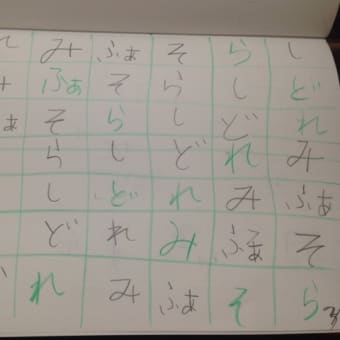 み ふぁ そ ら し
ふぁ そ ら し ど
ぁ そ ら し ど れ
ら し ど れ み
し ど れ み ふぁ
ど れ み ふぁ そ
れ み ふぁ そ ら